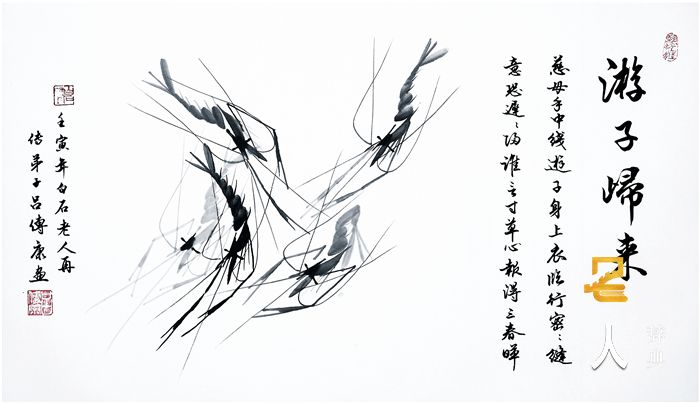 游子歸来
慈母手中线遊子身上衣临行密:缝
意恐遲:归谁言寸草心報得三春晖
壬寅年白石老人再
传弟子吕傳康画
名人
辞典